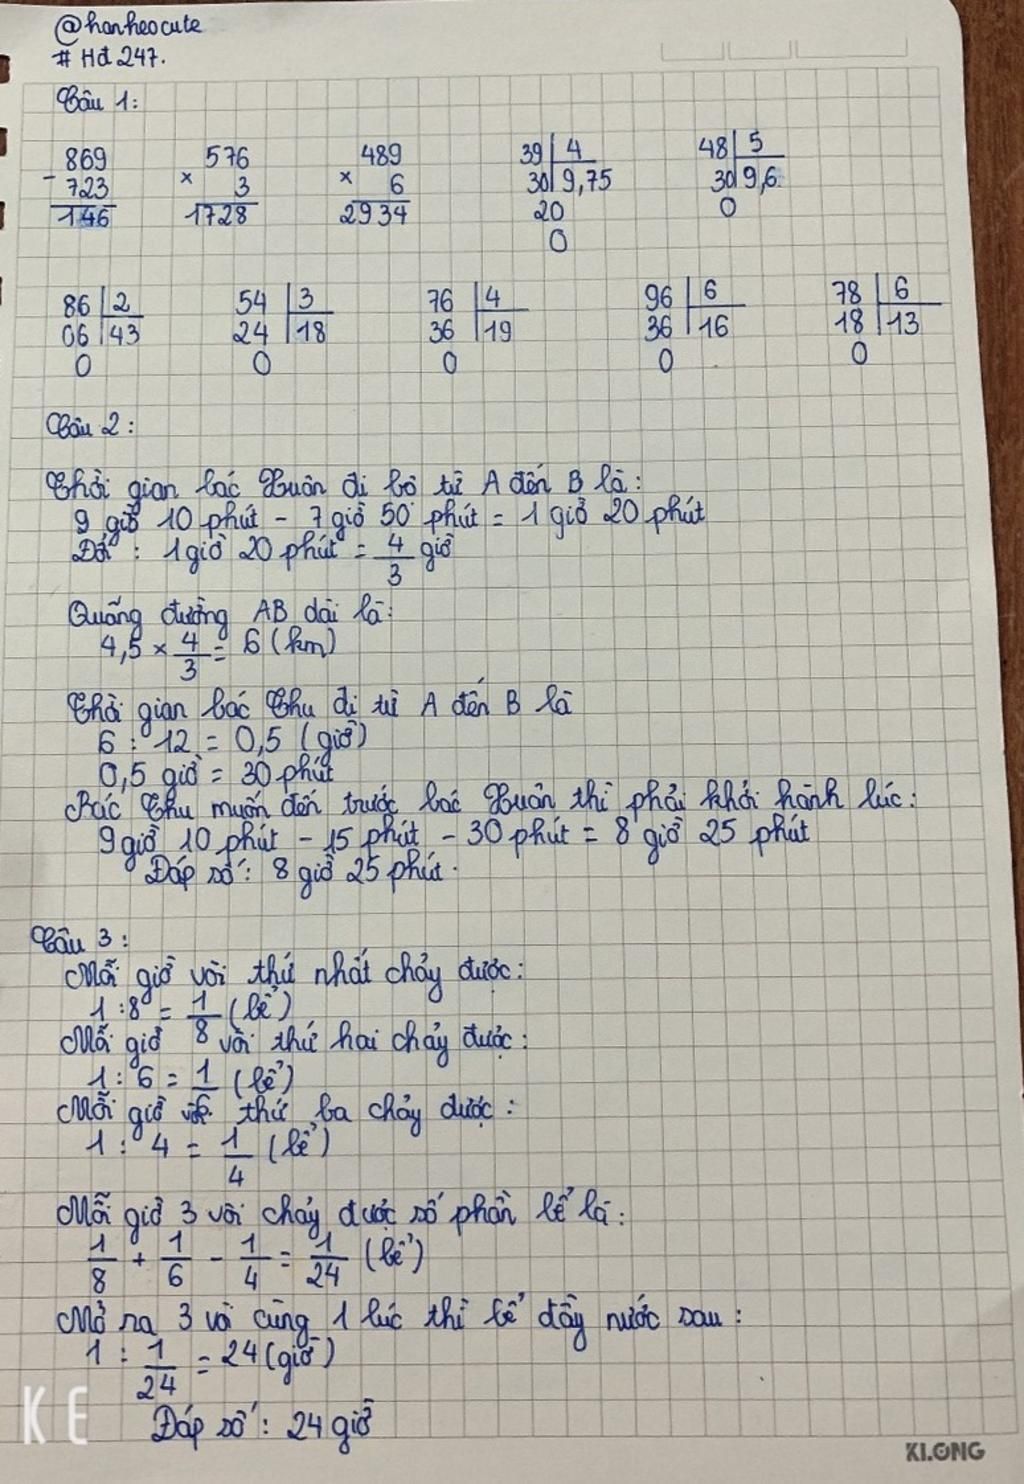 @hanheocute
# Hđ 247.
Câu 1:
869 576 489 39 | 4 48 | 5
- 723 × 3 × 6 30 | 9,75 30 | 9,6
146 1728 2934 20 0
0
86 | 2 54 | 3 76 | 4 96 | 6 78 | 6
06 | 43 24 | 18 36 | 19 36 | 16 18 | 13
0 0 0 0 0
Câu 2:
Thời gian bác Xuân đi bộ từ A đến B là:
9 giờ 10 phút - 7 giờ 50 phút = 1 giờ 20 phút
Đổi : 1 giờ 20 phút = 4/3 giờ
Quãng đường AB dài là:
4,5 × 4/3 = 6 (km)
Thời gian bác Thu đi từ A đến B là
6 : 12 = 0,5 (giờ)
0,5 giờ = 30 phút
Bác Thu muốn đến trước bác Xuân thì phải khởi hành lúc:
9 giờ 10 phút - 15 phút - 30 phút = 8 giờ 25 phút
Đáp số: 8 giờ 25 phút.
Câu 3:
Mỗi giờ vòi thứ nhất chảy được:
1 : 8 = 1/8 (bể)
Mỗi giờ vòi thứ hai chảy được:
1 : 6 = 1/6 (bể)
Mỗi giờ vòi thứ ba chảy được :
1 : 4 = 1/4 (bể)
Mỗi giờ 3 vòi chảy được số phần bể là:
1/8 + 1/6 - 1/4 = 1/24 (bể)
Mở ra 3 vòi cùng 1 lúc thì bể đầy nước sau :
1 : 1/24 = 24 (giờ)
Đáp số : 24 giờ
KE
KLONG